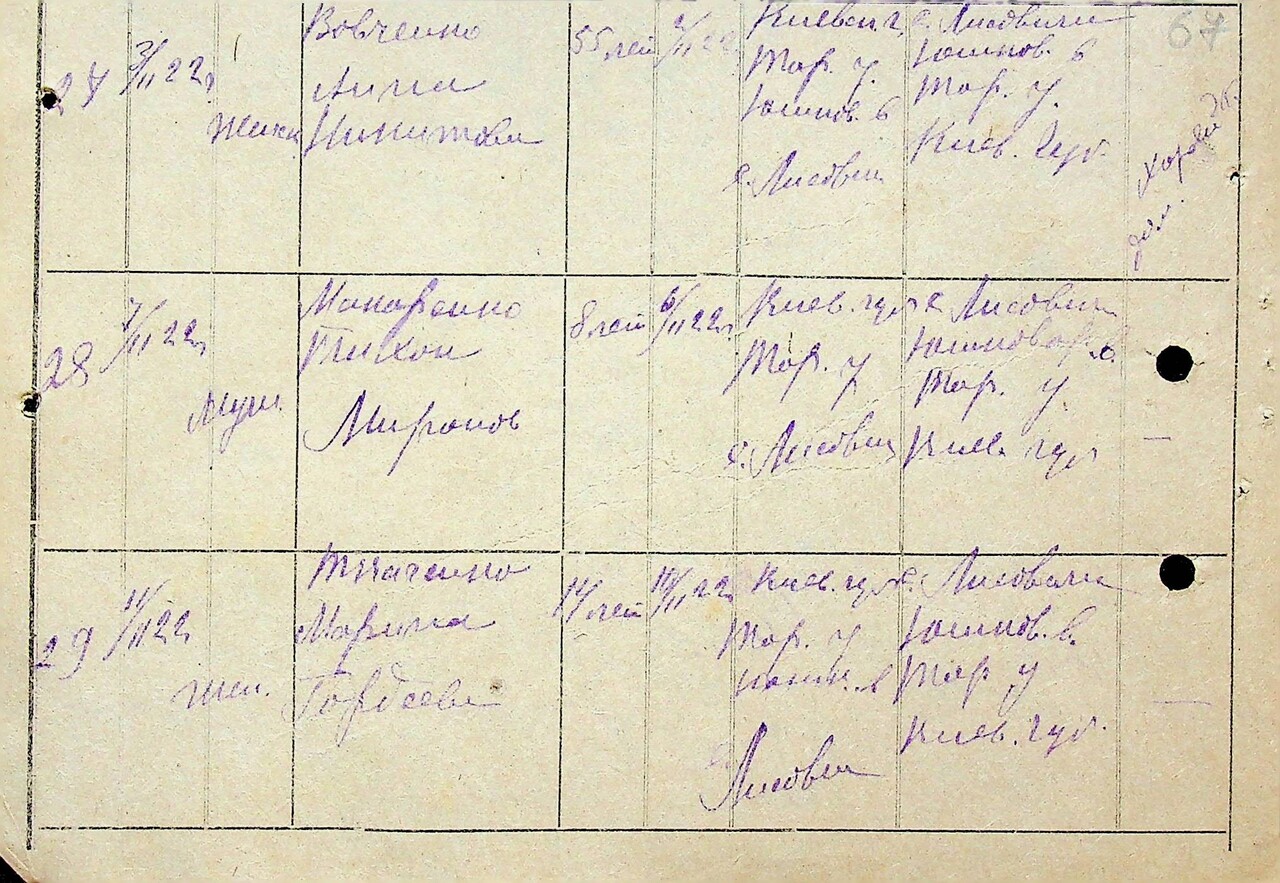 67
27
3/II 22 г
женс
Вовченко
Анна
Никитова
55 лет
2/II 22
Киевск г,
Тар. у.
Юшков. в
с. Лисович
с. Лисовичи
Юшков. в
Тар. у.
Киев. Губ.
дом. Хозяй
28
7/II 22 г
Муж.
Макаренко
Тихон
Миронов
8 лет
6/II 22 г
Киев. губ
Тар. у
с. Лисович
с. Лисович
Юшковск. в.
Тар. у.
Киев. губ
29
11/II 22
Жен.
Ткаченко
Марина
Гордеева
14 лет
10/II 22
Киев. губ
Тар. у
Юшк. в
с. Лисович
с. Лисовичи
Юшков. в.
Тар у
Киев. губ.